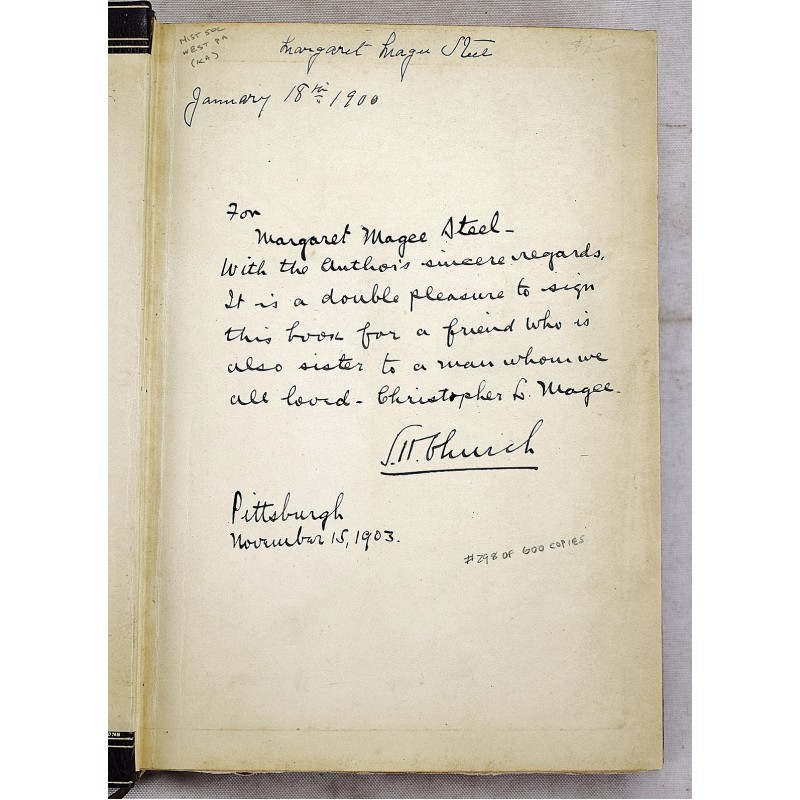 HIST SOC
WEST PA
(KA)
Margaret Magee Steel
January 18th 1900
For
Margaret Magee Steel -
With the Author's sincere regards.
It is a double pleasure to sign
this book for a friend who is
also sister to a man whom we
all loved - Christopher L. Magee.
S.H. Church
Pittsburgh
November 15, 1903.
#298 OF 600 COPIES